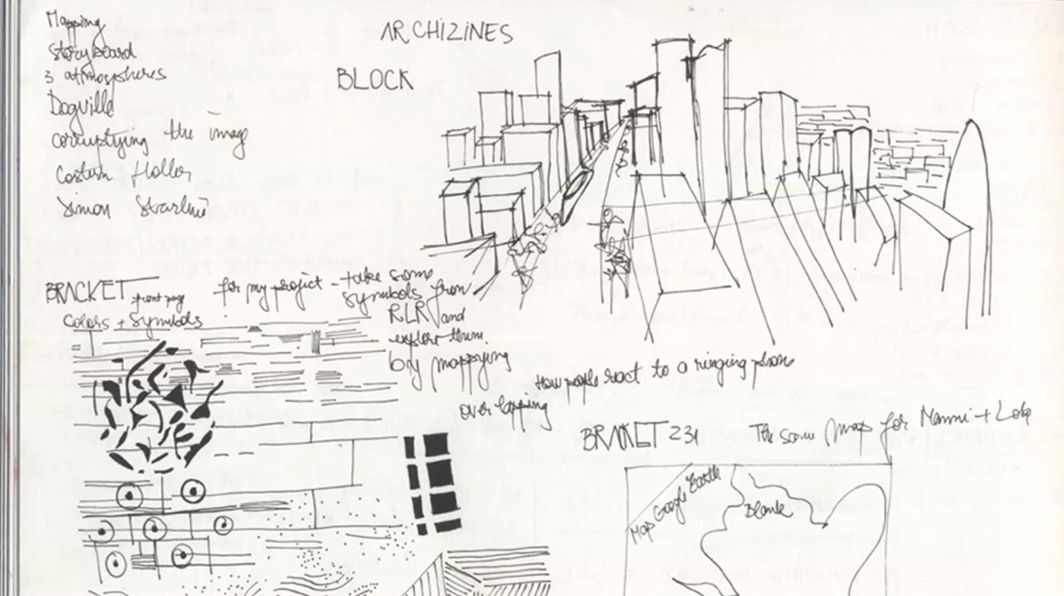 Mapping
storyboard
3 atmospheres
Dogville
corrustying the image
Costem Holler
Simon Starling
ARCHIZINES
BLOCK
BRACKET front page
Colors + Symbols
for my project - take some
symbols from
R.L.R. and
explore them
by mappying
overlapping
How people react to a ringing phone
BRAKET 231
The same map for Nanni + Lobo
Map Google Earth
Blank